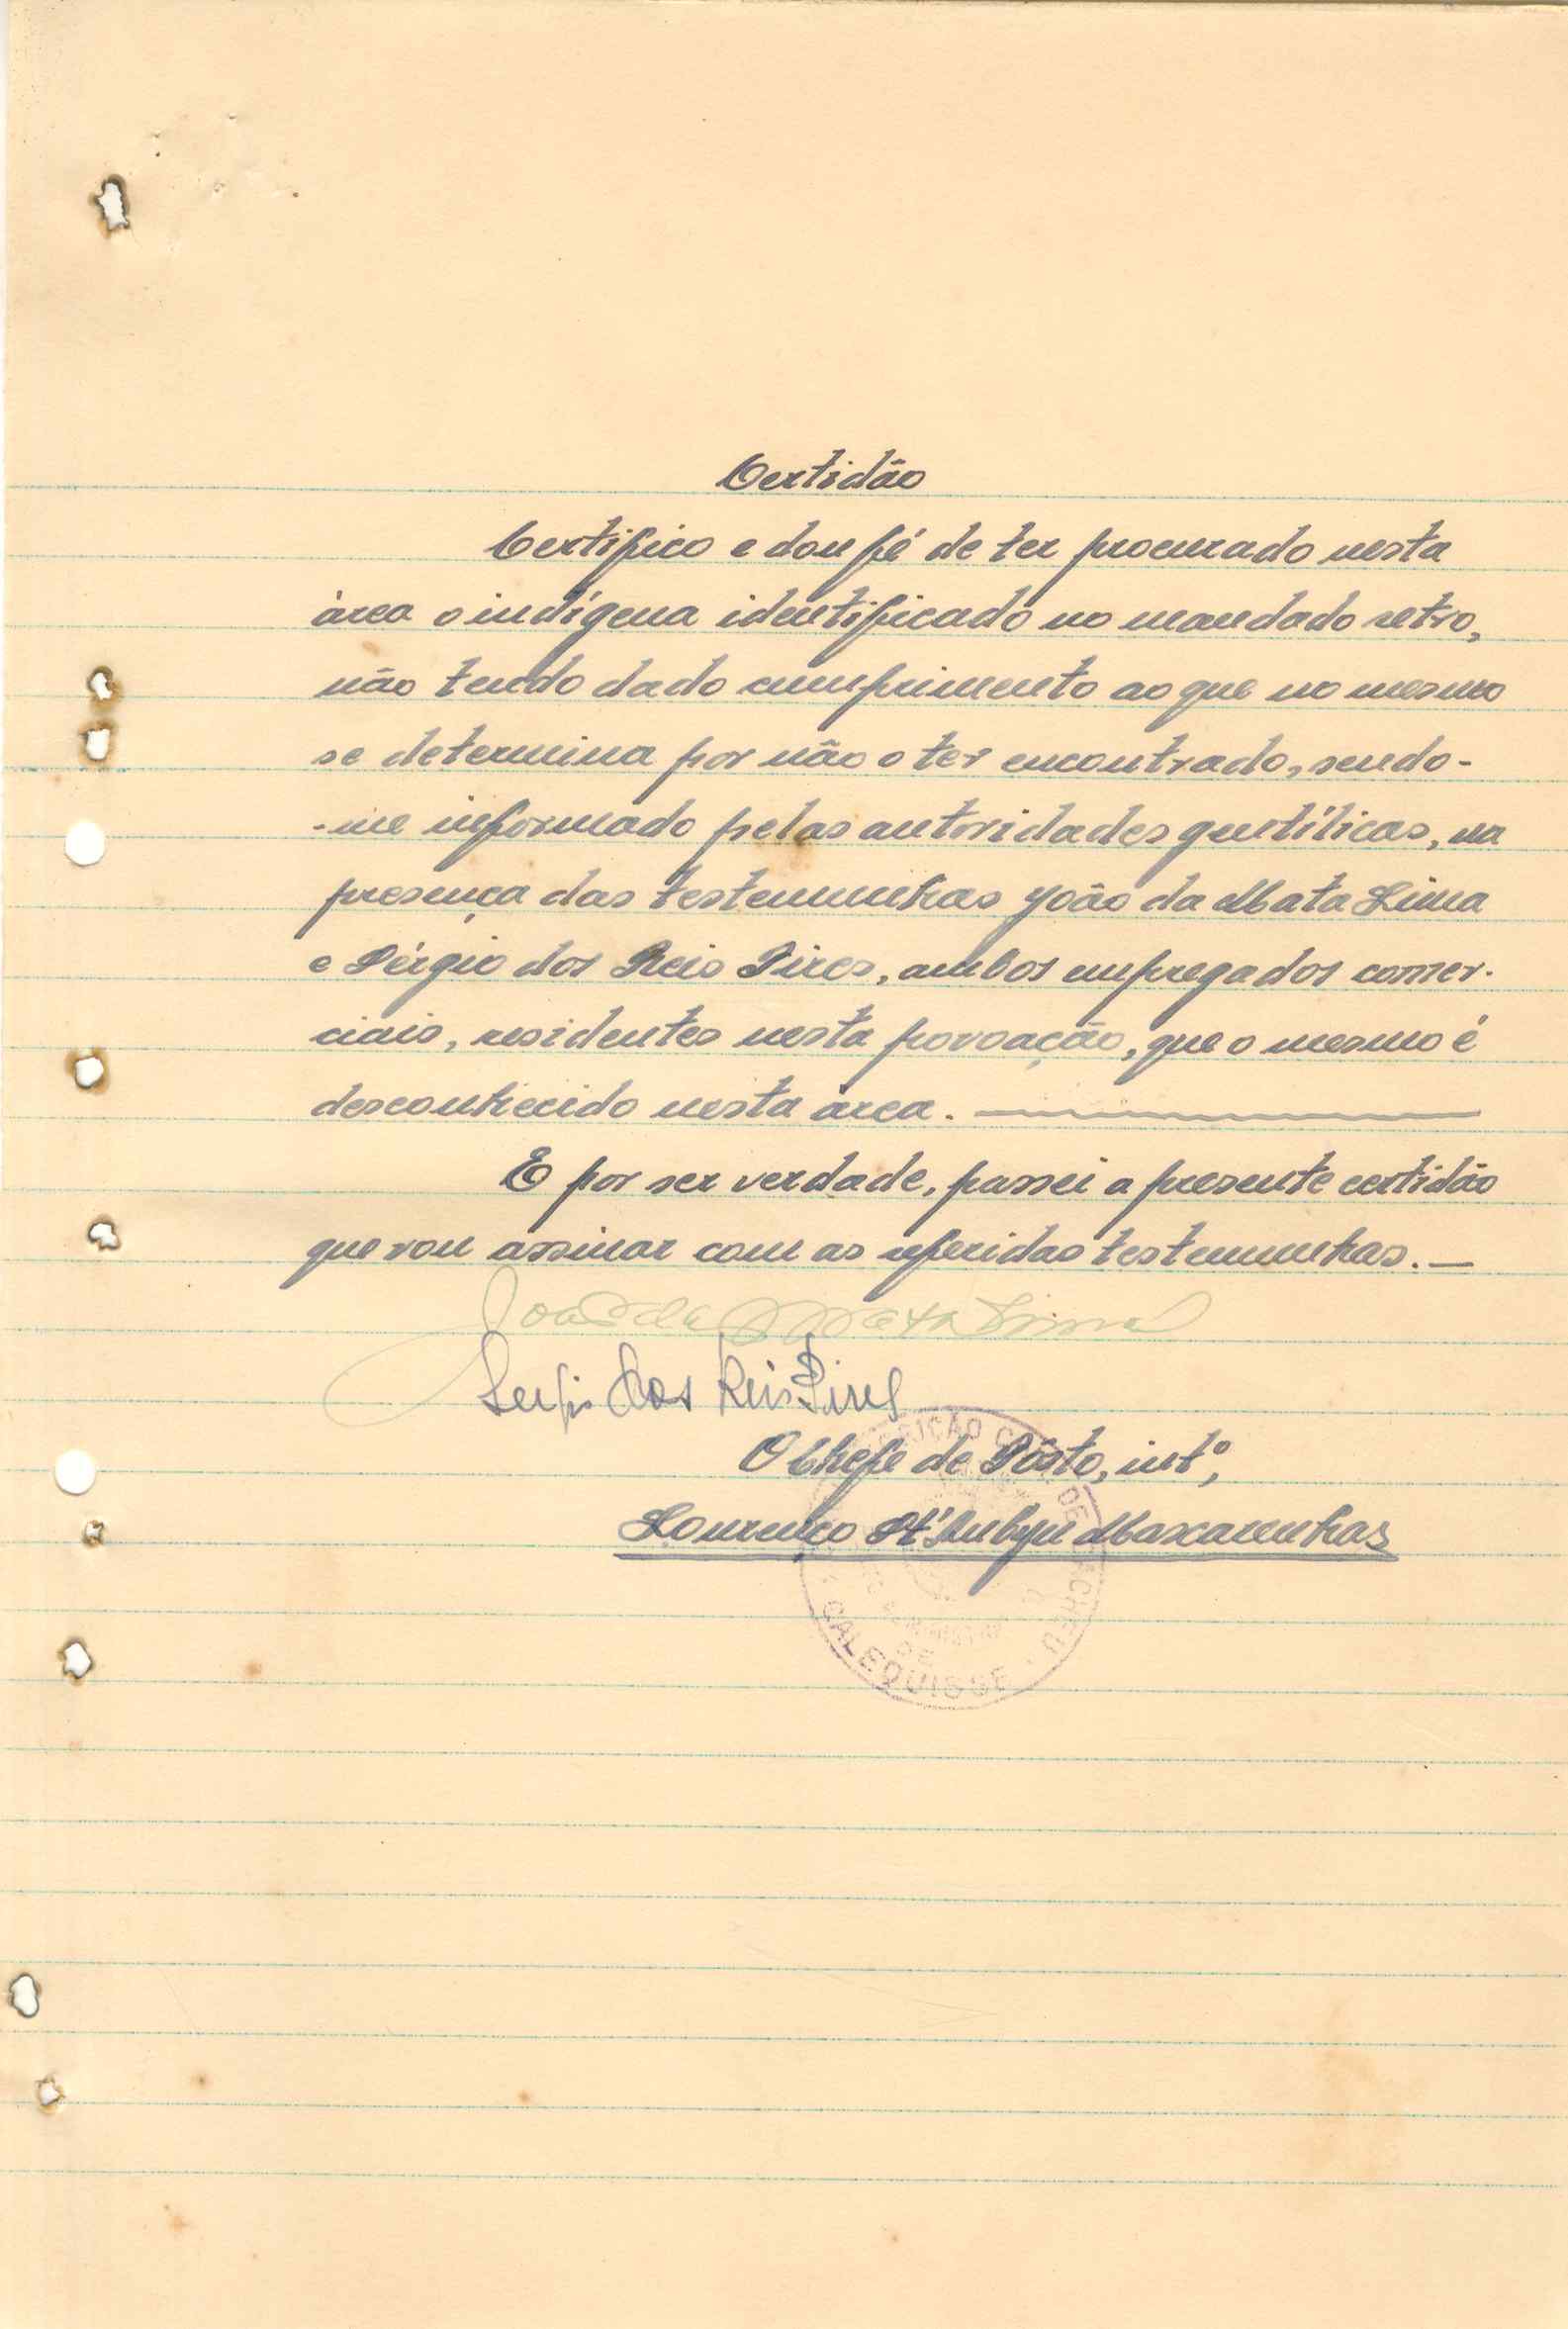 Certidão
Certifico e dou fé de ter procurado nesta
área o indígena identificado no mandado retro,
não tendo dado cumprimento ao que no mesmo
se determina por não o ter encontrado, sendo-
-me informado pelas autoridades gentílicas, na
presença das testemunhas João da Mata Lima
e Sérgio dos Reis Pires, ambos empregados comer-
ciais, residentes nesta povoação, que o mesmo é
desconhecido nesta área.
E por ser verdade, passei a presente certidão
que vou assinar com as referidas testemunhas.—
João da Mata Lima
Sergio dos Reis Pires
O Chefe de Pôsto, intº,
Lourenço St'Aubyn Mascarenhas
DE CACHEU
DE
CALEQUISSE